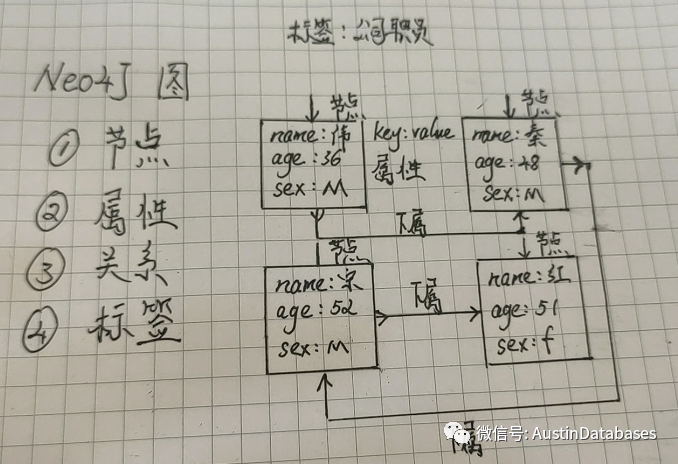 标签:公司职员
Neo4J 图
① 节点
② 属性
③ 关系
④ 标签
节点
name:伟
age:36
sex:M
key:value
属性
节点
name:秦
age:48
sex:M
下属
节点
name:宋
age:52
sex:M
下属
节点
name:红
age:51
sex:f
下属
微信号: AustinDatabases